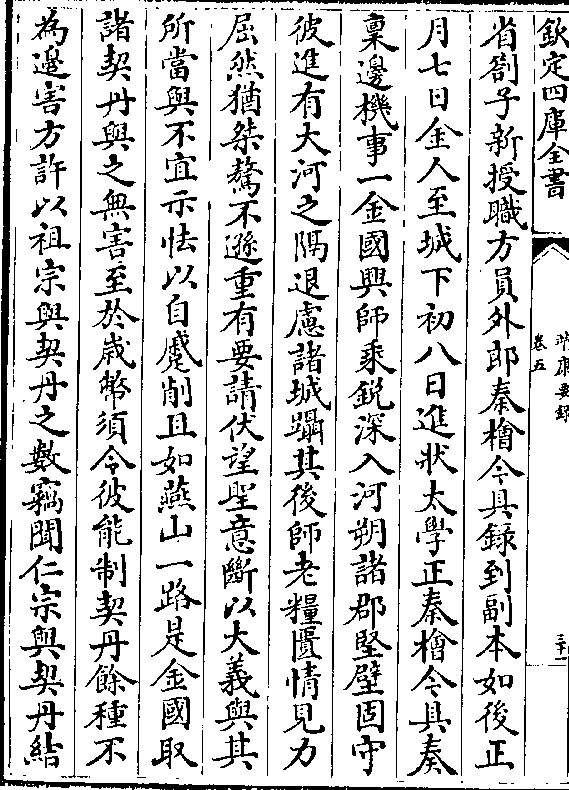 欽定四庫全書
靖康要錄
卷五
三十二
省劄子新授職方員外郎秦檜今具錄到副本如後正
月七日金人至城下初八日進狀太學正秦檜今具奏
稟邊機事一金國興師乘銳深入河朔諸郡堅壁固守
彼進有大河之隔退慮諸城躡其後師老糧匱情見力
屈然猶桀驁不遜重有要請伏望聖意斷以大義與其
所當與不宜示怯以自蹙削且如燕山一路是金國取
諸契丹與之無害至於歲幣須令彼能制契丹餘種不
為邊害方許以祖宗與契丹之數竊聞仁宗與契丹結